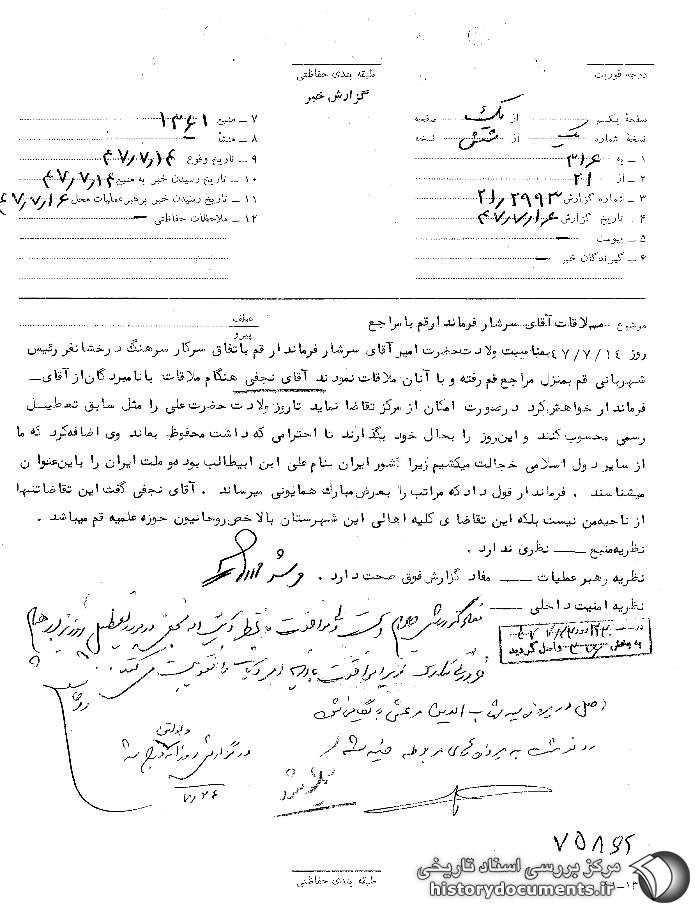 درجه فوریت
طبقه بندی حفاظتی
گزارش خبر
صفحهٔ یکم از یک صفحه
نسخهٔ شماره یک از شش نسخه
۱ ــ به ۳۱۶
۲ ــ از ۲۱
۳ ــ شماره گزارش ۲۱/۲۹۹۳
۴ ــ تاریخ گزارش ۴۷/۷/۱۶
۵ ــ پیوست ــ
۶ ــ گیرندگان خبر ــ
۷ ــ منبع ۱۳۶۱
۸ ــ منشأ
۹ ــ تاریخ وقوع ۴۷/۷/۱۴
۱۰ ــ تاریخ رسیدن خبر به منبع ۴۷/۷/۱۴
۱۱ ــ تاریخ رسیدن خبر برهبر عملیات محل ۴۷/۷/۱۶
۱۲ ــ ملاحظات حفاظتی ــ
موضوع ملاقات آقای سرشار فرماندار قم با مراجع
عطف
پیرو
روز ۴۷/۷/۱۴ بمناسبت ولادت حضرت امیر آقای سرشار فرماندار قم باتفاق سرکار سرهنگ درخشانفر رئیس
شهربانی قم بمنزل مراجع قم رفته و با آنان ملاقات نمودند آقای نجفی هنگام ملاقات با نامبردگان از آقای ــ
فرماندار خواهش کرد در صورت امکان از مرکز تقاضا نماید تا روز ولادت حضرت علی را مثل سابق تعطیل
رسمی محسوب کنند و این روز را بحال خود بگذارند تا احترامی که داشت محفوظ بماند وی اضافه کرد که ما
از سایر دول اسلامی خجالت میکشیم زیرا کشور ایران بنام علی ابن ابیطالب بوده و ملت ایران را باین عنوان
میشناسند . فرماندار قول داد که مراتب را بعرض مبارک همایونی میرساند . آقای نجفی گفت این تقاضا تنها
از ناحیه من نیست بلکه این تقاضای کلیه اهالی این شهرستان بالاخص روحانیون حوزه علمیه قم میباشد .
نظریه منبع ــ نظری ندارد .
نظریه رهبر عملیات ــ مفاد گزارش فوق صحت دارد .
نظریه امنیت داخلی ــ
به بخش ۳۱۶ واصل گردید
اصل در پرونده سید شهاب الدین مرعشی بایگانی
در گزارش روزانه درج شد
۷/۲۴
۷۵۸۶۲
طبقه بندی حفاظتی
مرکز بررسی اسناد تاریخی
historydocuments.ir